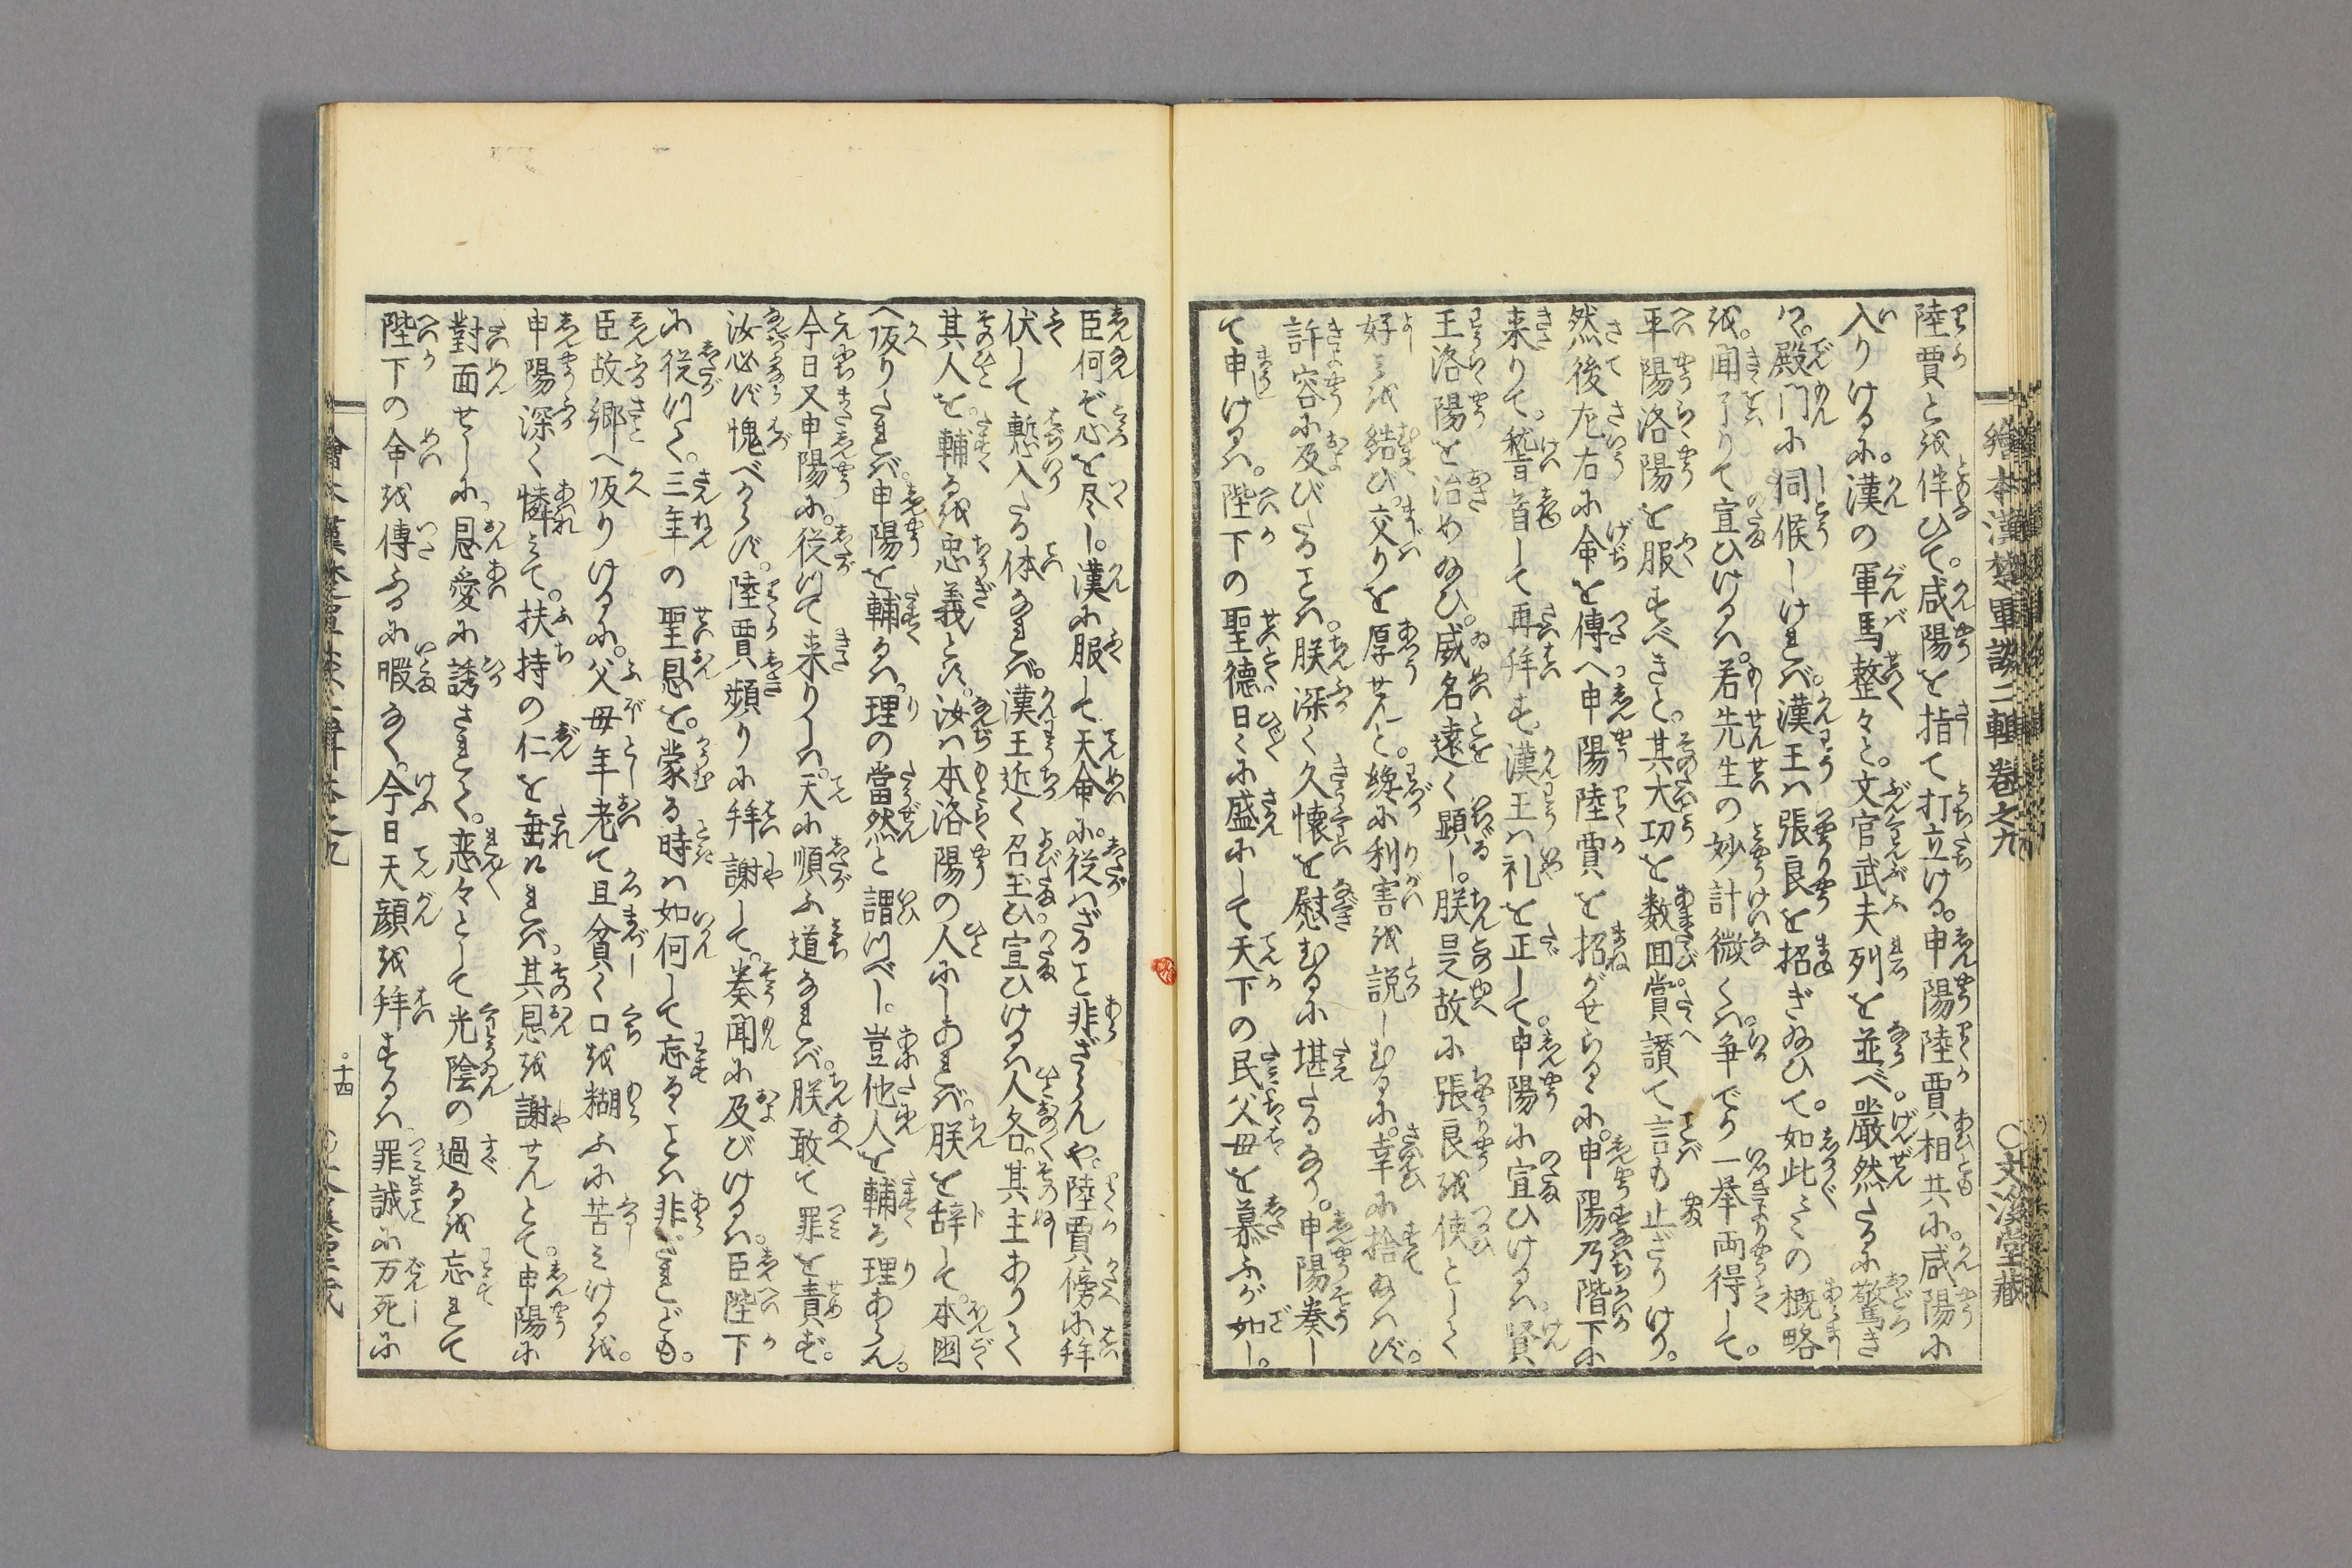 陸賈と越伴ひて。咸陽を指て打立ける。申陽陸賈相共に。咸陽に
入りけるに。漢の軍馬整々と。文官武夫列を並べ。嚴然たるに驚き
つゝ。殿門に伺候しければ。漢王は張良を招ぎ給ひて。如此々の概略
を。聞了りて宣ひけるは。若先生の妙計微くは。争でか一挙両得して。
平陽洛陽を服すべきと。其大功を数回賞讃て言も止ざりけり。
然後左右に命を傳へ。申陽陸賈を招がせらるゝに。申陽乃階下に
来りて。稽首して再拜す。漢王は礼を正して。申陽に宣ひけるは。賢
王洛陽を治め給ひ。威名遠く顕し。朕是故に張良を使として
好みを結び。交りを厚せんと。纔に利害を説しむるに。幸に捨給はず。
許容に及びたるは。朕深く久懐を慰むるに堪たるなり。申陽奏し
て申けるは。陛下の聖徳日々に盛にして天下の民父母を慕ふが如し。
臣何ぞ心を尽し。漢に服して天命に。従はざること非ざらんや。陸賈傍に拜
伏して慙入たる体なれば。漢王近く召玉ひ宣ひけるは人各。其主ありて
其人を。輔るを忠義とす。汝は本洛陽の人にしあれば。朕を辞して。本國
へ皈りたれば。申陽を輔るは。理の當然と謂つべし。豈他人を輔る理あらん。
今日又申陽に。従つて来りしは。天に順ふ道なれば。朕敢て罪を責ず。
汝必ず愧べからず。陸賈頻りに拜謝して。奏聞に及びけるは。臣陛下
に従つて。三年の聖恩を。蒙る時は如何して忘るゝことは非ざれども。
臣故郷へ皈りけるに。父母年老て且貧く口を糊ふに苦みけるを。
申陽深く憐みて。扶持の仁を垂ければ。其恩を謝せんとて。申陽に
對面せしに。恩愛に誘されて。恋々として光陰の過るを忘れて
陛下の命を傳ふるに暇なく。今日天顔を拜するは罪誠に万死に
繪本漢楚軍談二輯卷之九
○文溪堂藏
十四